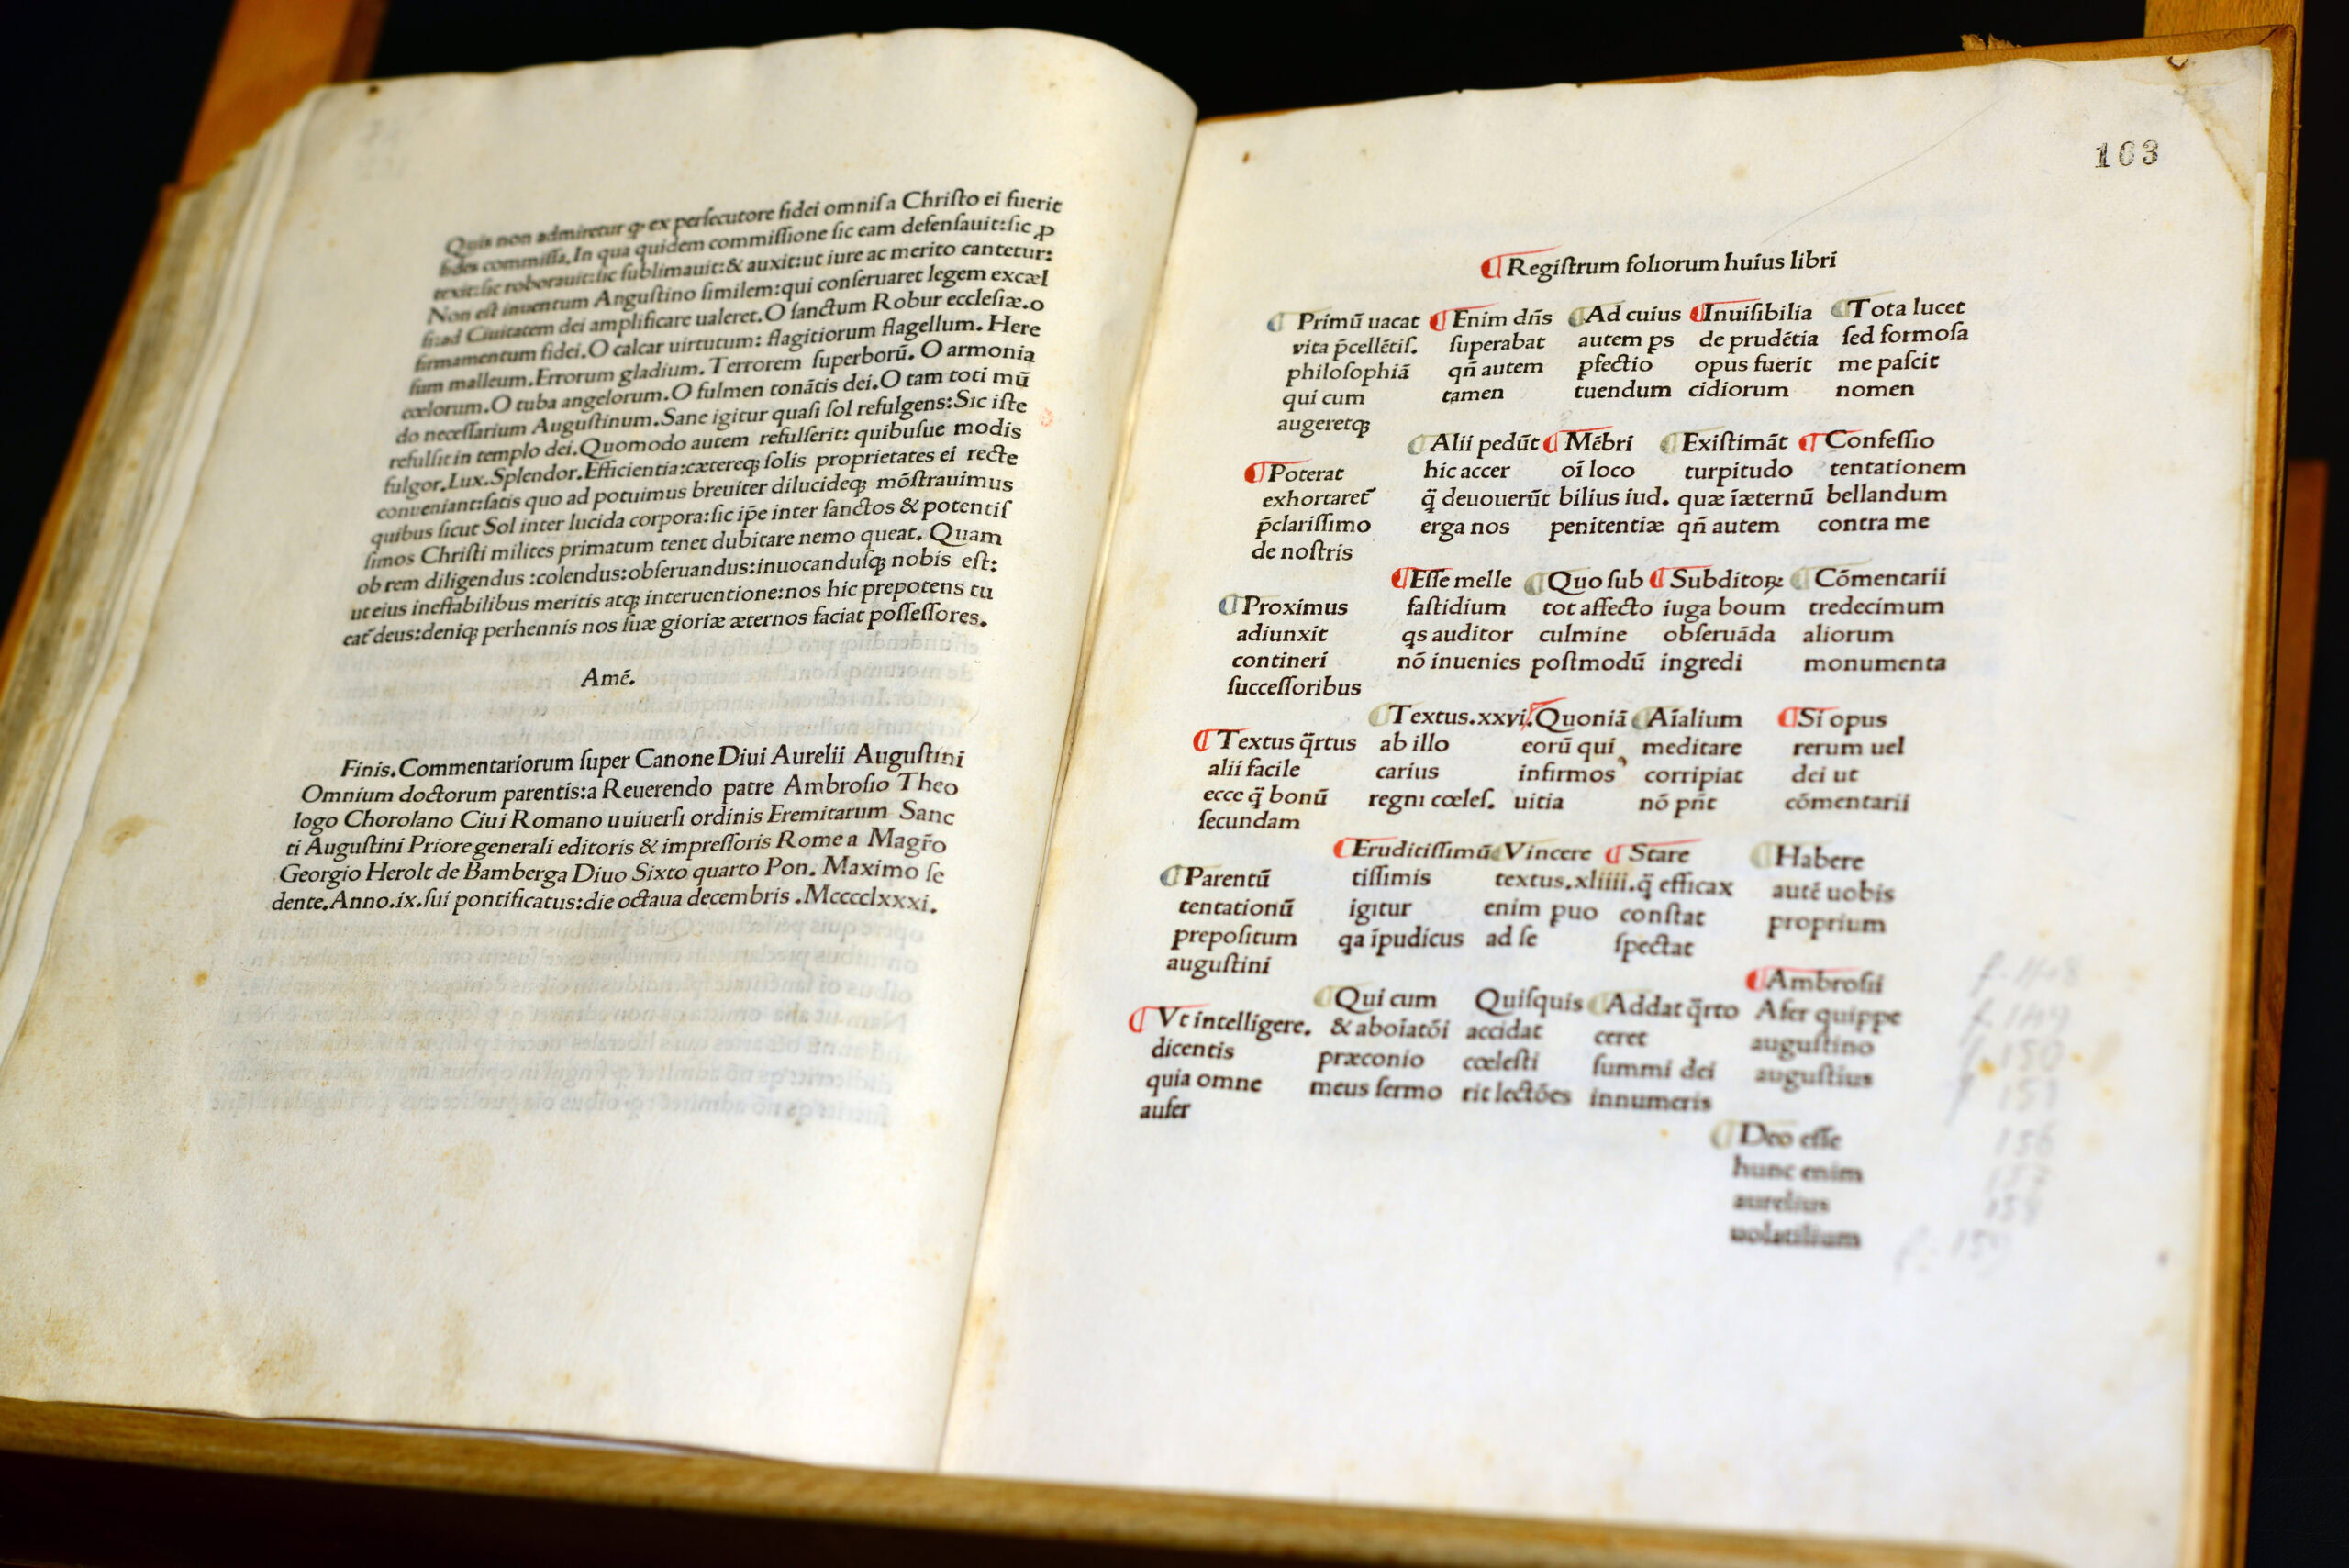 Quis non admiretur ꝙ ex perſecutore fidei omniſ a Chriſto ei fuerit
fides commiſſa. In qua quidem commiſſione ſic eam defenſauit: ſic ꝑ
texit: ſic roborauit: ſic ſublimauit: & auxit: ut iure ac merito cantetur:
Non eſt inuentum Anguſtino ſimilem: qui conſeruaret legem excæl
ſi: ad Ciuitatem dei amplificare ualeret. O ſanctum Robur eccleſiæ. o
firmamentum fidei. O calcar uirtutum: flagitiorum flagellum. Here
ſium malleum. Errorum gladium. Terrorem ſuperborū. O armonia
cœlorum. O tuba angelorum. O fulmen tonātis dei. O tam toti mū
do neceſſarium Auguſtinum. Sane igitur quaſi ſol refulgens: Sic iſte
refulſit in templo dei. Quomodo autem refulſerit: quibuſue modis
fulgor. Lux. Splendor. Efficientia: cætereqꝫ ſolis proprietates ei recte
conueniant: ſatis quo ad potuimus breuiter dilucideqꝫ mōſtrauimus
quibus ſicut Sol inter lucida corpora: ſic ip̄e inter ſanctos & potentiſ
ſimos Chriſti milites primatum tenet dubitare nemo queat. Quam
ob rem diligendus : colendus: obſeruandus: inuocanduſqꝫ nobis eſt:
ut eius ineffabilibus meritis atqꝫ interuentione: nos hic prepotens tu
eat᷑ deus: deniqꝫ perhennis nos ſuæ gioriæ æternos faciat poſſeſſores.
Amē.
Finis. Commentariorum ſuper Canone Diui Aurelii Auguſtini
Omnium doctorum parentis: a Reuerendo patre Ambroſio Theo
logo Chorolano Ciui Romano uuiuerſi ordinis Eremitarum Sanc
ti Auguſtini Priore generali editoris & impreſſoris Rome a Magr̄o
Georgio Herolt de Bamberga Diuo Sixto quarto Pon. Maximo ſe
dente. Anno. ix. ſui pontificatus: die octaua decembris . Mcccclxxxi.
163
Regiſtrum foliorum huius libri
Primū uacat
vita p̄cellētiſ.
philoſophiā
qui cum
augeretqꝫ
Poterat
exhortaret᷑
p̄clariſſimo
de noſtris
Proximus
adiunxit
contineri
ſucceſſoribus
Textus q̄rtus
alii facile
ecce q̄ bonū
ſecundam
Parentū
tentationū
prepoſitum
auguſtini
Vt intelligere.
dicentis
quia omne
aufer
Enim dn̄s
ſuperabat
qn̄ autem
tamen
Alii pedūt
hic accer
q̄ deuouerūt
erga nos
Eſſe melle
faſtidium
qs auditor
nō inuenies
Textus. xxvi.
ab illo
carius
regni cœleſ.
Eruditiſſimū
tiſſimis
igitur
qa īpudicus
Qui cum
& aboīatōi
præconio
meus ſermo
Ad cuius
autem ps
ꝑfectio
tuendum
Mēbri
oī loco
bilius iud.
penitentiæ
Quo ſub
tot affecto
culmine
poſtmodū
Quoniā
eorū qui
infirmos
uitia
Vincere
textus. xliiii.
enim puo
ad ſe
Quiſquis
accidat
cœleſti
rit lectōes
Inuiſibilia
de prudētia
opus fuerit
cidiorum
Exiſtimāt
turpitudo
quæ īæternū
qn̄ autem
Subditoꝝ
iuga boum
obſeruāda
ingredi
Aīalium
meditare
corripiat
nō pn̄t
Stare
q̄ efficax
conſtat
ſpectat
Addat q̄rto
ceret
ſummi dei
innumeris
Tota lucet
ſed formoſa
me paſcit
nomen
Confeſſio
tentationem
bellandum
contra me
Cōmentarii
tredecimum
aliorum
monumenta
Si opus
rerum uel
dei ut
cōmentarii
Habere
autē uobis
proprium
Ambroſii
Afer quippe
auguſtino
auguſtius
Deo eſſe
hunc enim
aurelius
uolatilium
f. 148
f. 149
f. 150
f. 151
156
157
158
f. 159